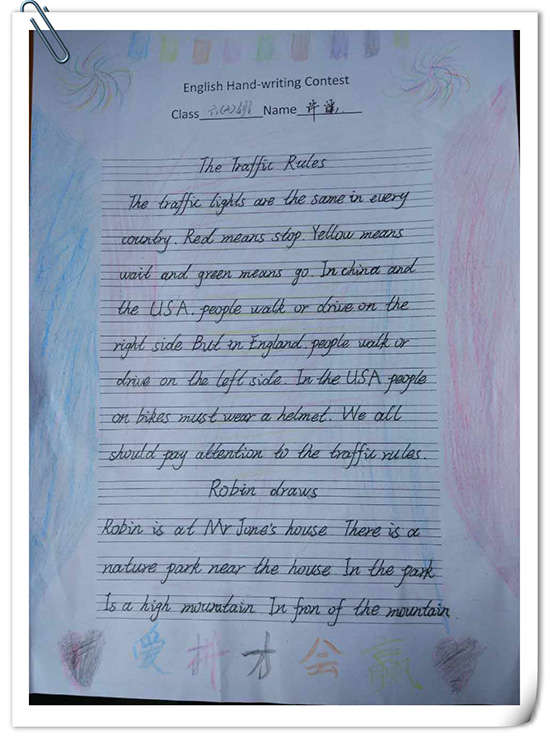 English Hand-writing Contest
Class 六(2)班 Name 许
The Traffic Rules
The traffic lights are the same in every
country. Red means stop. Yellow means
wait and green means go. In china and
the USA. people walk or drive on the
right side But in England. people walk or
drive on the left side. In the USA people
on bikes must wear a helmet. We all
should pay attention to the traffic rules.
Robin draws
Robin is at Mr June's house There is a
nature park near the house In the park
Is a high mountain In fron of the mountain
爱拼才会赢